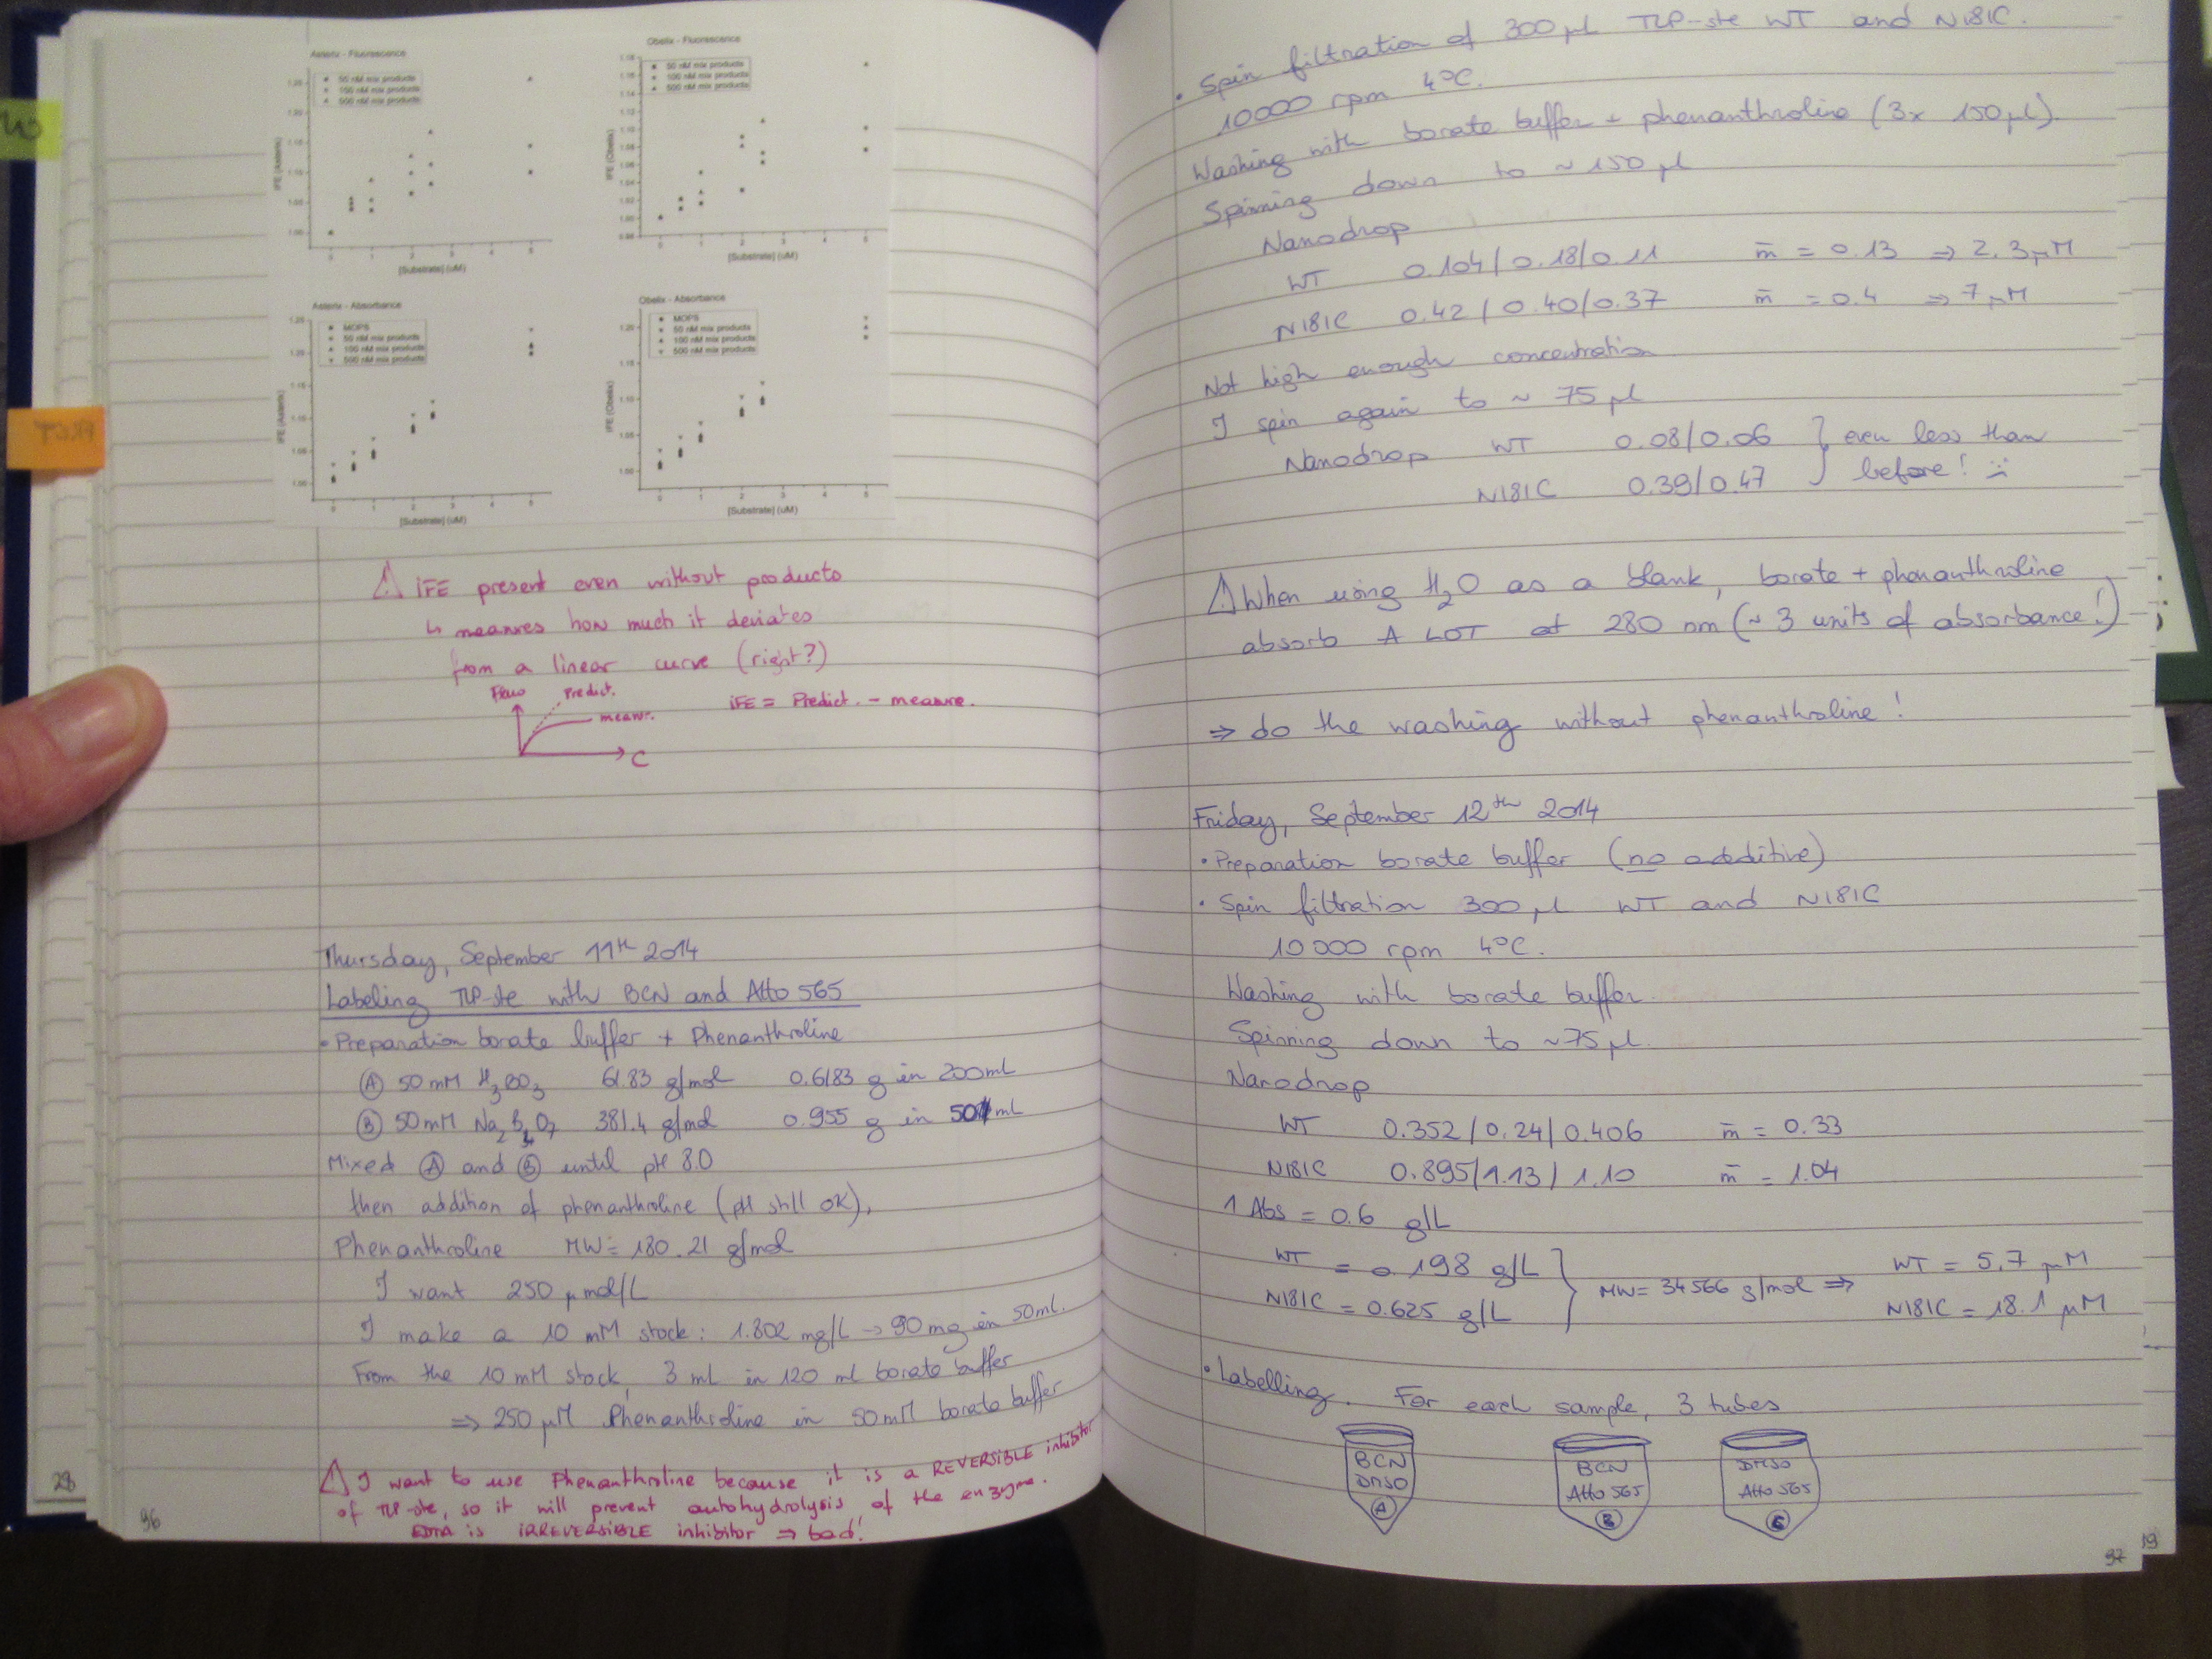 Asterix - Fluorescence
50 nM mix products
100 nM mix products
500 nM mix products
IFE (Asterix)
[Substrate] (uM)
Obelix - Fluorescence
50 nM mix products
100 nM mix products
500 nM mix products
IFE (Obelix)
[Substrate] (uM)
Asterix - Absorbance
MOPS
50 nM mix products
100 nM mix products
500 nM mix products
IFE (Asterix)
[Substrate] (uM)
Obelix - Absorbance
MOPS
50 nM mix products
100 nM mix products
500 nM mix products
IFE (Obelix)
[Substrate] (uM)
⚠ iFE present even without products
↳ measures how much it deviates
from a linear curve (right?)
Fluo
Predict.
measur.
C
iFE = Predict. - measure.
Thursday, September 11th 2014
Labeling TLP-ste with BCN and Atto 565
• Preparation borate buffer + Phenanthroline
Ⓐ 50 mM H3BO3 61.83 g/mol 0.6183 g in 200 mL
Ⓑ 50 mM Na2B4O7 381.4 g/mol 0.955 g in 50 mL
Mixed Ⓐ and Ⓑ until pH 8.0
then addition of phenanthroline (pH still OK).
Phenanthroline MW = 180.21 g/mol
I want 250 µmol/L
I make a 10 mM stock: 1.802 mg/L → 90 mg in 50 mL.
From the 10 mM stock, 3 mL in 120 ml borate buffer
⇒ 250 µM Phenanthroline in 50 mM borate buffer
⚠ I want to use Phenanthroline because it is a REVERSIBLE inhibitor
of TLP-ste, so it will prevent autohydrolysis of the enzyme.
EDTA is IRREVERSIBLE inhibitor ⇒ bad!
28
96
• Spin filtration of 300 µl TLP-ste WT and N181C.
10000 rpm 4°C.
Washing with borate buffer + phenanthroline (3x 150 µl).
Spinning down to ~ 150 µl
Nanodrop
WT 0.104 / 0.18 / 0.11 m̄ = 0.13 ⇒ 2.3 µM
N181C 0.42 / 0.40 / 0.37 m̄ = 0.4 ⇒ 7 µM
Not high enough concentration
I spin again to ~ 75 µl
Nanodrop WT 0.08 / 0.06 } even less than
N181C 0.39 / 0.47 } before! :(
⚠ When using H2O as a blank, borate + phenanthroline
absorb A LOT at 280 nm (~ 3 units of absorbance!)
⇒ do the washing without phenanthroline!
Friday, September 12th 2014
• Preparation borate buffer (no additive)
• Spin filtration 300 µl WT and N181C
10000 rpm 4°C.
Washing with borate buffer.
Spinning down to ~75 µl.
Nanodrop
WT 0.352 / 0.24 / 0.406 m̄ = 0.33
N181C 0.895 / 1.13 / 1.10 m̄ = 1.04
1 Abs = 0.6 g/L
WT = 0.198 g/L } MW = 34566 g/mol ⇒ WT = 5.7 µM
N181C = 0.625 g/L } N181C = 18.1 µM
• Labelling. For each sample, 3 tubes
BCN
DMSO
Ⓐ
BCN
Atto 565
Ⓑ
DMSO
Atto 565
Ⓒ
97